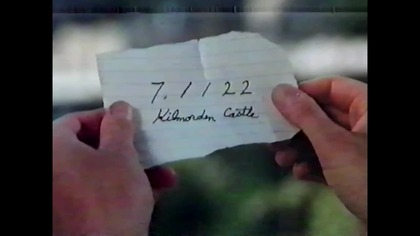 7. 1 1 22
Kilmorden Castle